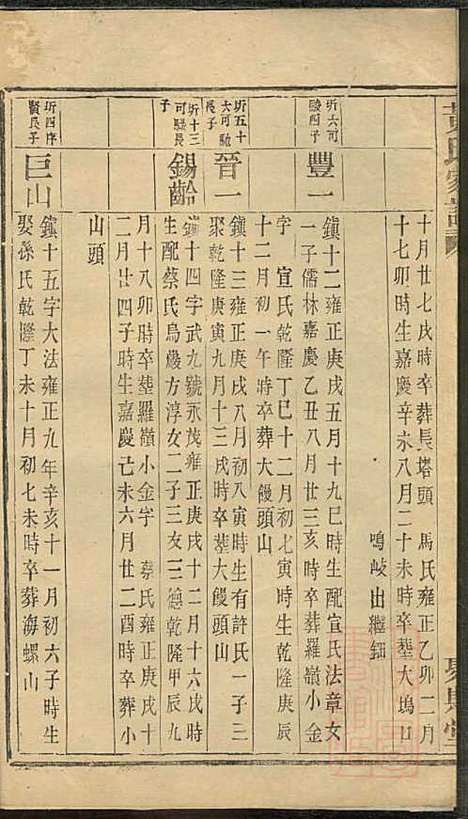 十月廿七戌時卒葬長塔頭　馬氏雍正乙卯二月
十七卯時生嘉慶辛未八月二十未時卒塟大塢口
鳴岐出繼鈿
圻六可
陵四子
豐一
鎮十二雍正庚戌五月十九巳時生配宣氏法章女
一子儒林嘉慶乙丑八月廿三亥時卒塟羅嶺小金
字　宣氏乾隆丁巳十二月初七寅時生乾隆庚辰
十二月初一午時卒葬大饅頭山
圻五十
大可馳
長子
晉一
鎮十三雍正庚戌八月八寅時生有許氏一子三
聚乾隆庚寅九月十三戌時卒塟大饅頭山
圻十三
可騷長
子
錫齡
鎮十四字武九號永茂雍正庚戌十二月十六戌時
生配蔡氏烏巖方淳女二子三女三德乾隆甲辰九
月十八卯時卒塟羅嶺小金字　蔡氏雍正庚戌十
二月廿四子時生嘉慶己未六月廿二酉時卒葬小
山頭
圻四序
賢長子
巨山
鎮十五字大法雍正九年辛亥十一月初六子時生
娶孫氏乾隆丁未十月初七未時卒葬海螺山